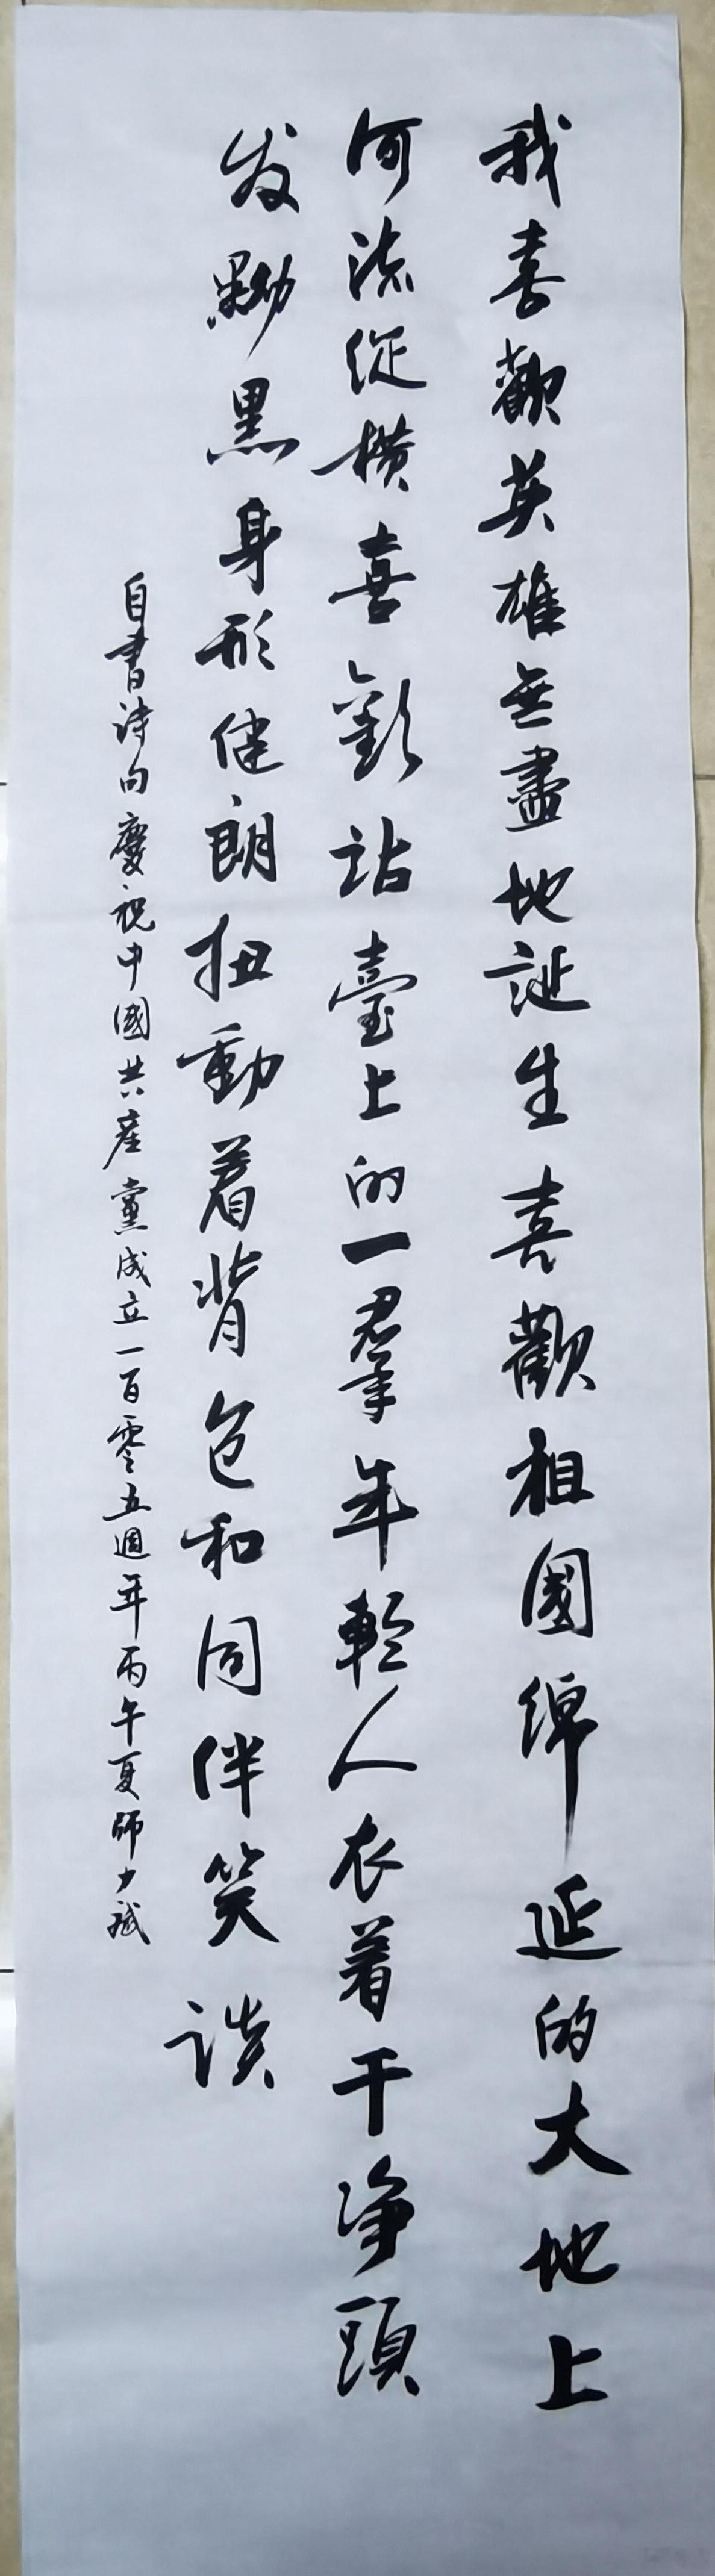 我喜歡英雄無盡地誕生喜歡祖國綿延的大地上
河流縱橫喜歡站臺上的一羣年輕人衣着干净頭
发黝黑身形健朗扭動着背包和同伴笑談
自書詩句慶祝中國共産黨成立一百零五週年丙午夏師力斌